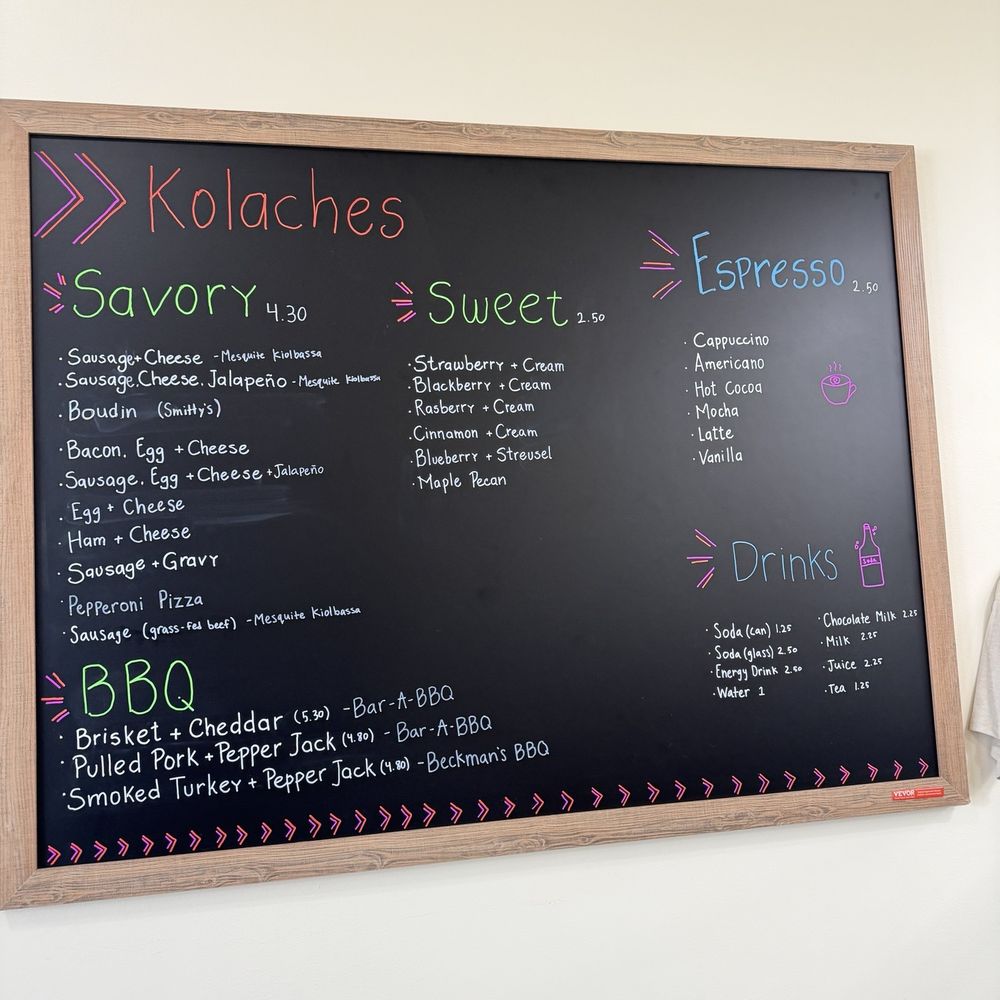 Kolaches
Savory 4.30
· Sausage + Cheese - Mesquite Kiolbassa
· Sausage, Cheese, Jalapeño - Mesquite Kiolbassa
· Boudin (Smitty's)
· Bacon, Egg + Cheese
· Sausage, Egg + Cheese + Jalapeño
· Egg + Cheese
· Ham + Cheese
· Sausage + Gravy
· Pepperoni Pizza
· Sausage (grass-fed beef) - Mesquite Kiolbassa
BBQ
· Brisket + Cheddar (5.30) - Bar-A-BBQ
· Pulled Pork + Pepper Jack (4.80) - Bar-A-BBQ
· Smoked Turkey + Pepper Jack (4.80) - Beckman's BBQ
Sweet 2.50
· Strawberry + Cream
· Blackberry + Cream
· Rasberry + Cream
· Cinnamon + Cream
· Blueberry + Streusel
· Maple Pecan
Espresso 2.50
· Cappuccino
· Americano
· Hot Cocoa
· Mocha
· Latte
· Vanilla
Drinks
Soda
· Soda (can) 1.25
· Soda (glass) 2.50
· Energy Drink 2.50
· Water 1
· Chocolate Milk 2.25
· Milk 2.25
· Juice 2.25
· Tea 1.25
VEVOR